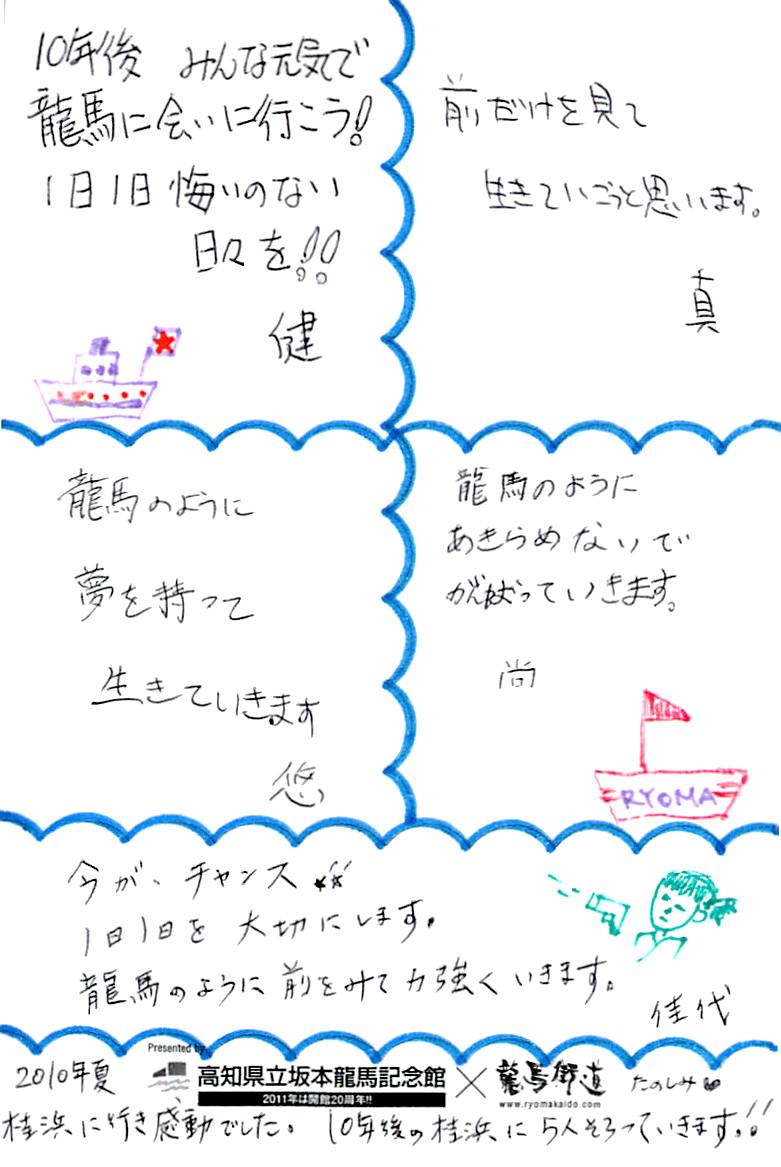 10年後 みんな元気で
龍馬に会いに行こう!
1日1日悔いのない
日々を!!
健
前だけを見て
生きていこうと思います。
真
龍馬のように
夢を持って
生きていきます
悠
龍馬のように
あきらめないで
がんばっていきます。
尚
RYOMA
今が、チャンス
1日1日を大切にします。
龍馬のように前をみて力強くいきます。
佳代
Presented by
高知県立坂本龍馬記念館 × 龍馬街道
2011年は開館20周年!!
www.ryomakaido.com
2010年夏
たのしみ
桂浜に行き感動でした。 10年後の桂浜に5人そろっていきます!!